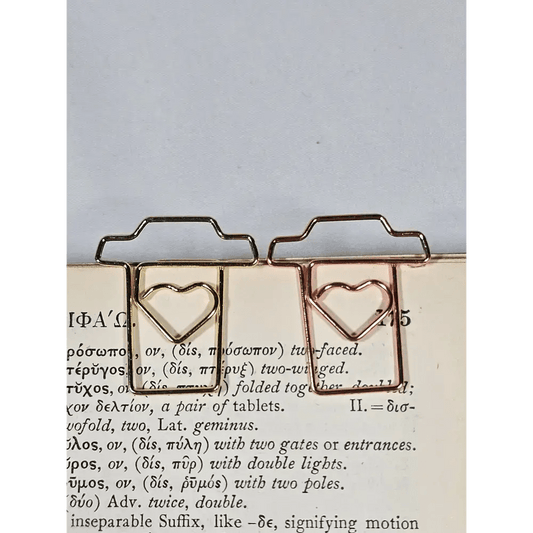 ΙΦΑ΄Ω. 175
ρόσωπος, ον, (δίς, πρόσωπον) two-faced.
τέρυγος, ον, (δίς, πτέρυξ) two-winged.
τῠχος, ον, (δίς, πτυχή) folded together, doubled;
χον δελτίον, a pair of tablets. II. = δισ-
wofold, two, Lat. geminus.
υλος, ον, (δίς, πύλη) with two gates or entrances.
υρος, ον, (δίς, πῦρ) with double lights.
ῡμος, ον, (δίς, ῥῡμός) with two poles.
(δύο) Adv. twice, double.
inseparable Suffix, like –δε, signifying motion